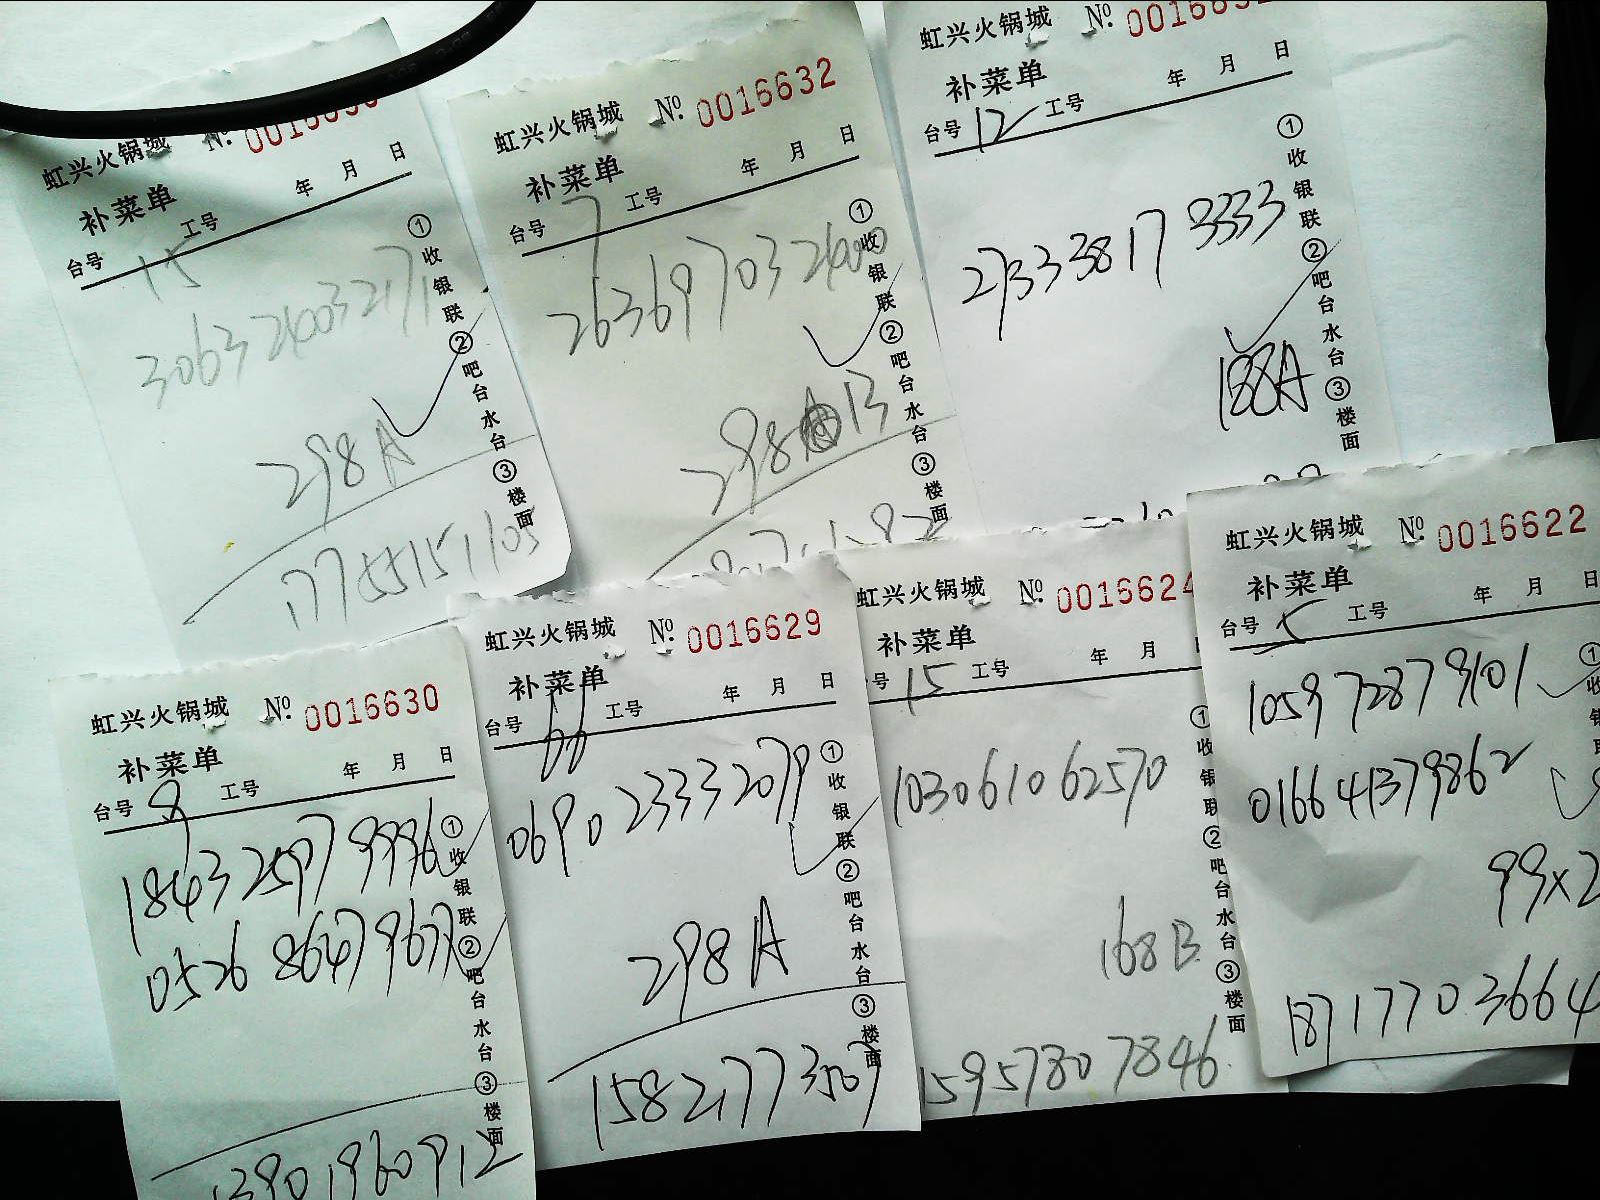 虹兴火锅城
补菜单
年 月 日
台号 15 工号
306324003217
298A
17755151103
①收银联②吧台水台③楼面
虹兴火锅城 Nº 0016632
补菜单
年 月 日
台号 7 工号
①收银联②吧台水台③楼面
虹兴火锅城 Nº
补菜单
年 月 日
台号 12 工号
273338173333
188A
①收银联②吧台水台③楼面
虹兴火锅城 Nº 0016630
补菜单
年 月 日
台号 8 工号
0526 86479637
13901960912
①收银联②吧台水台③楼面
虹兴火锅城 Nº 0016629
补菜单
年 月 日
台号 66 工号
069023332079
298A
15821773507
①收银联②吧台水台③楼面
虹兴火锅城 Nº 0016624
补菜单
年 月 日
号 15 工号
103061062570
168B
15957807846
①收银联②吧台水台③楼面
虹兴火锅城 Nº 0016622
补菜单
年 月 日
台号 5 工号
105972879101
016641379862
99×2
18717703664
①收银